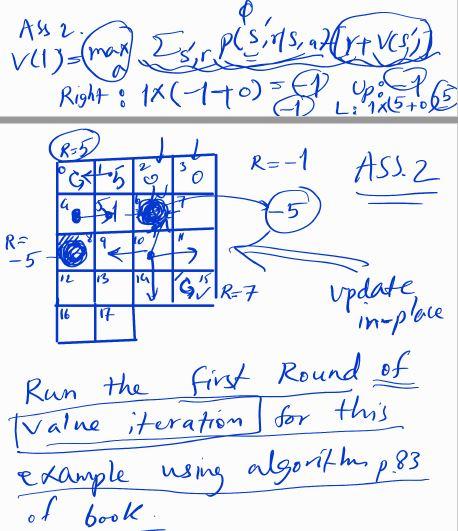 Ass 2.
V(1) = max a Σ s',r p(s',r|s,a) [r + V(s')]
Right : 1×(-1+0) = -1 Up: -1
-1 L: 1×(5+0) 5
R=5
0 1 5 2 3 0 R = -1 ASS. 2
4 5 -1 6 7 -5
R= -5 8 9 10 11
12 13 14 15 R=7
update
in-place
16 17
Run the first Round of
value iteration for this
example using algorithm p.83
of book.